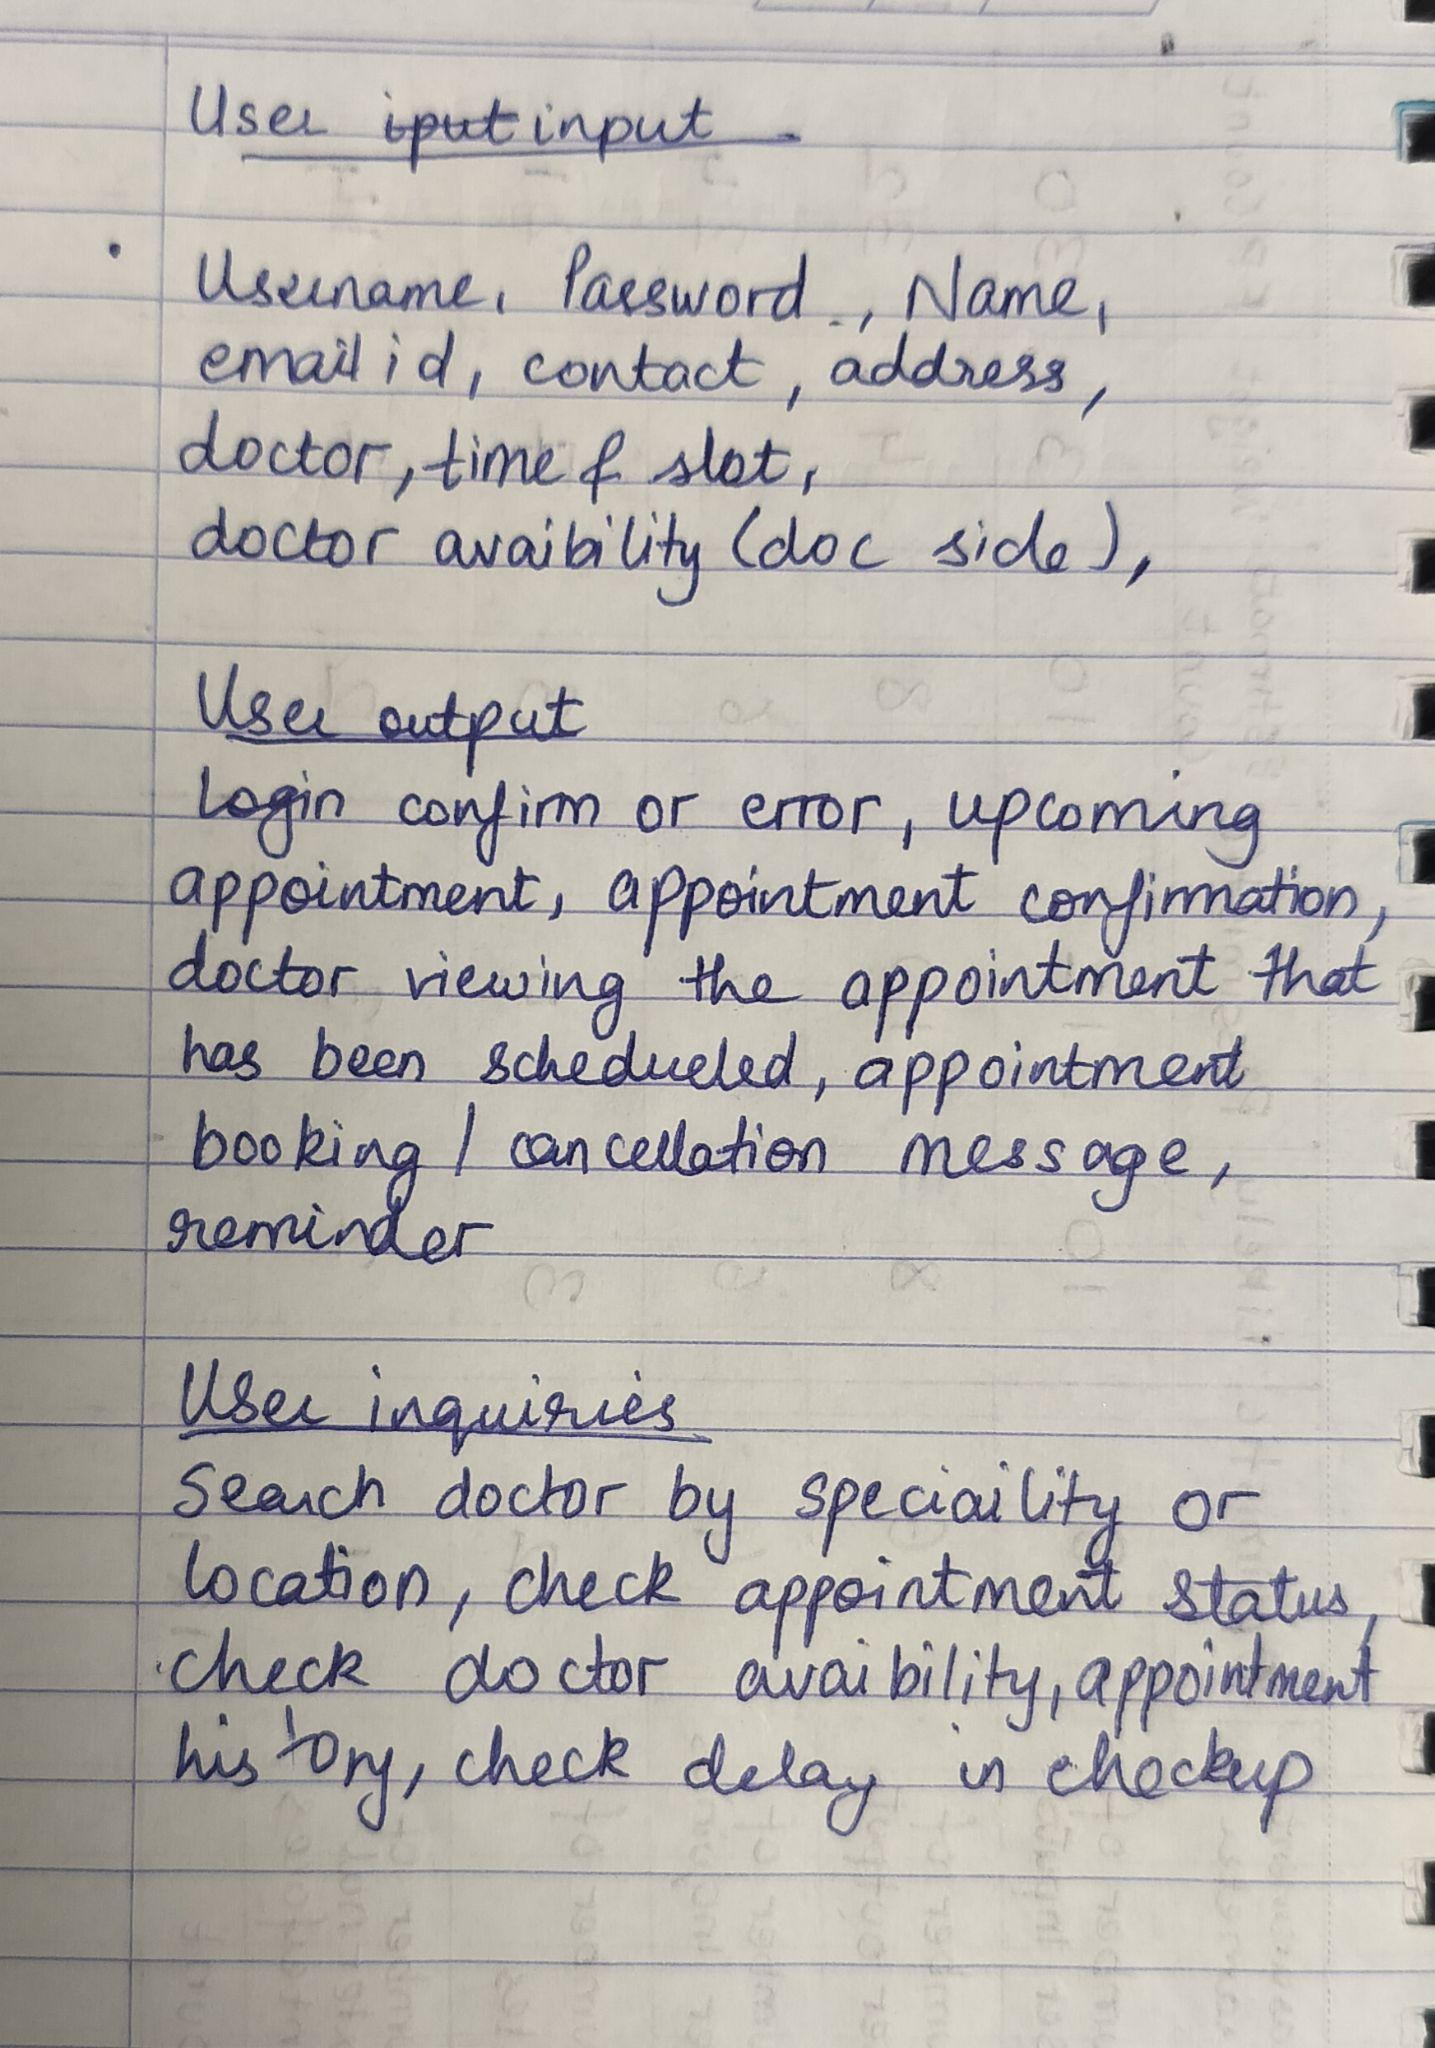 User iput input
Username, Password, Name,
email id, contact, address,
doctor, time & slot,
doctor avaibility (doc side),
User output
Login confirm or error, upcoming
appointment, appointment confirmation,
doctor viewing the appointment that
has been schedueled, appointment
booking / cancellation message,
reminder
User inquiries
Search doctor by speciaility or
location, check appointment status,
check doctor avaibility, appointment
history, check delay in checkup